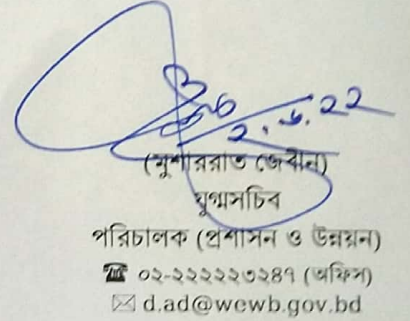 ২.৬.২২
(মুশাররাত জেবীন)
যুগ্মসচিব
পরিচালক (প্রশাসন ও উন্নয়ন)
☎ ০২-২২২২২৩২৪৭ (অফিস)
✉ d.ad@wewb.gov.bd